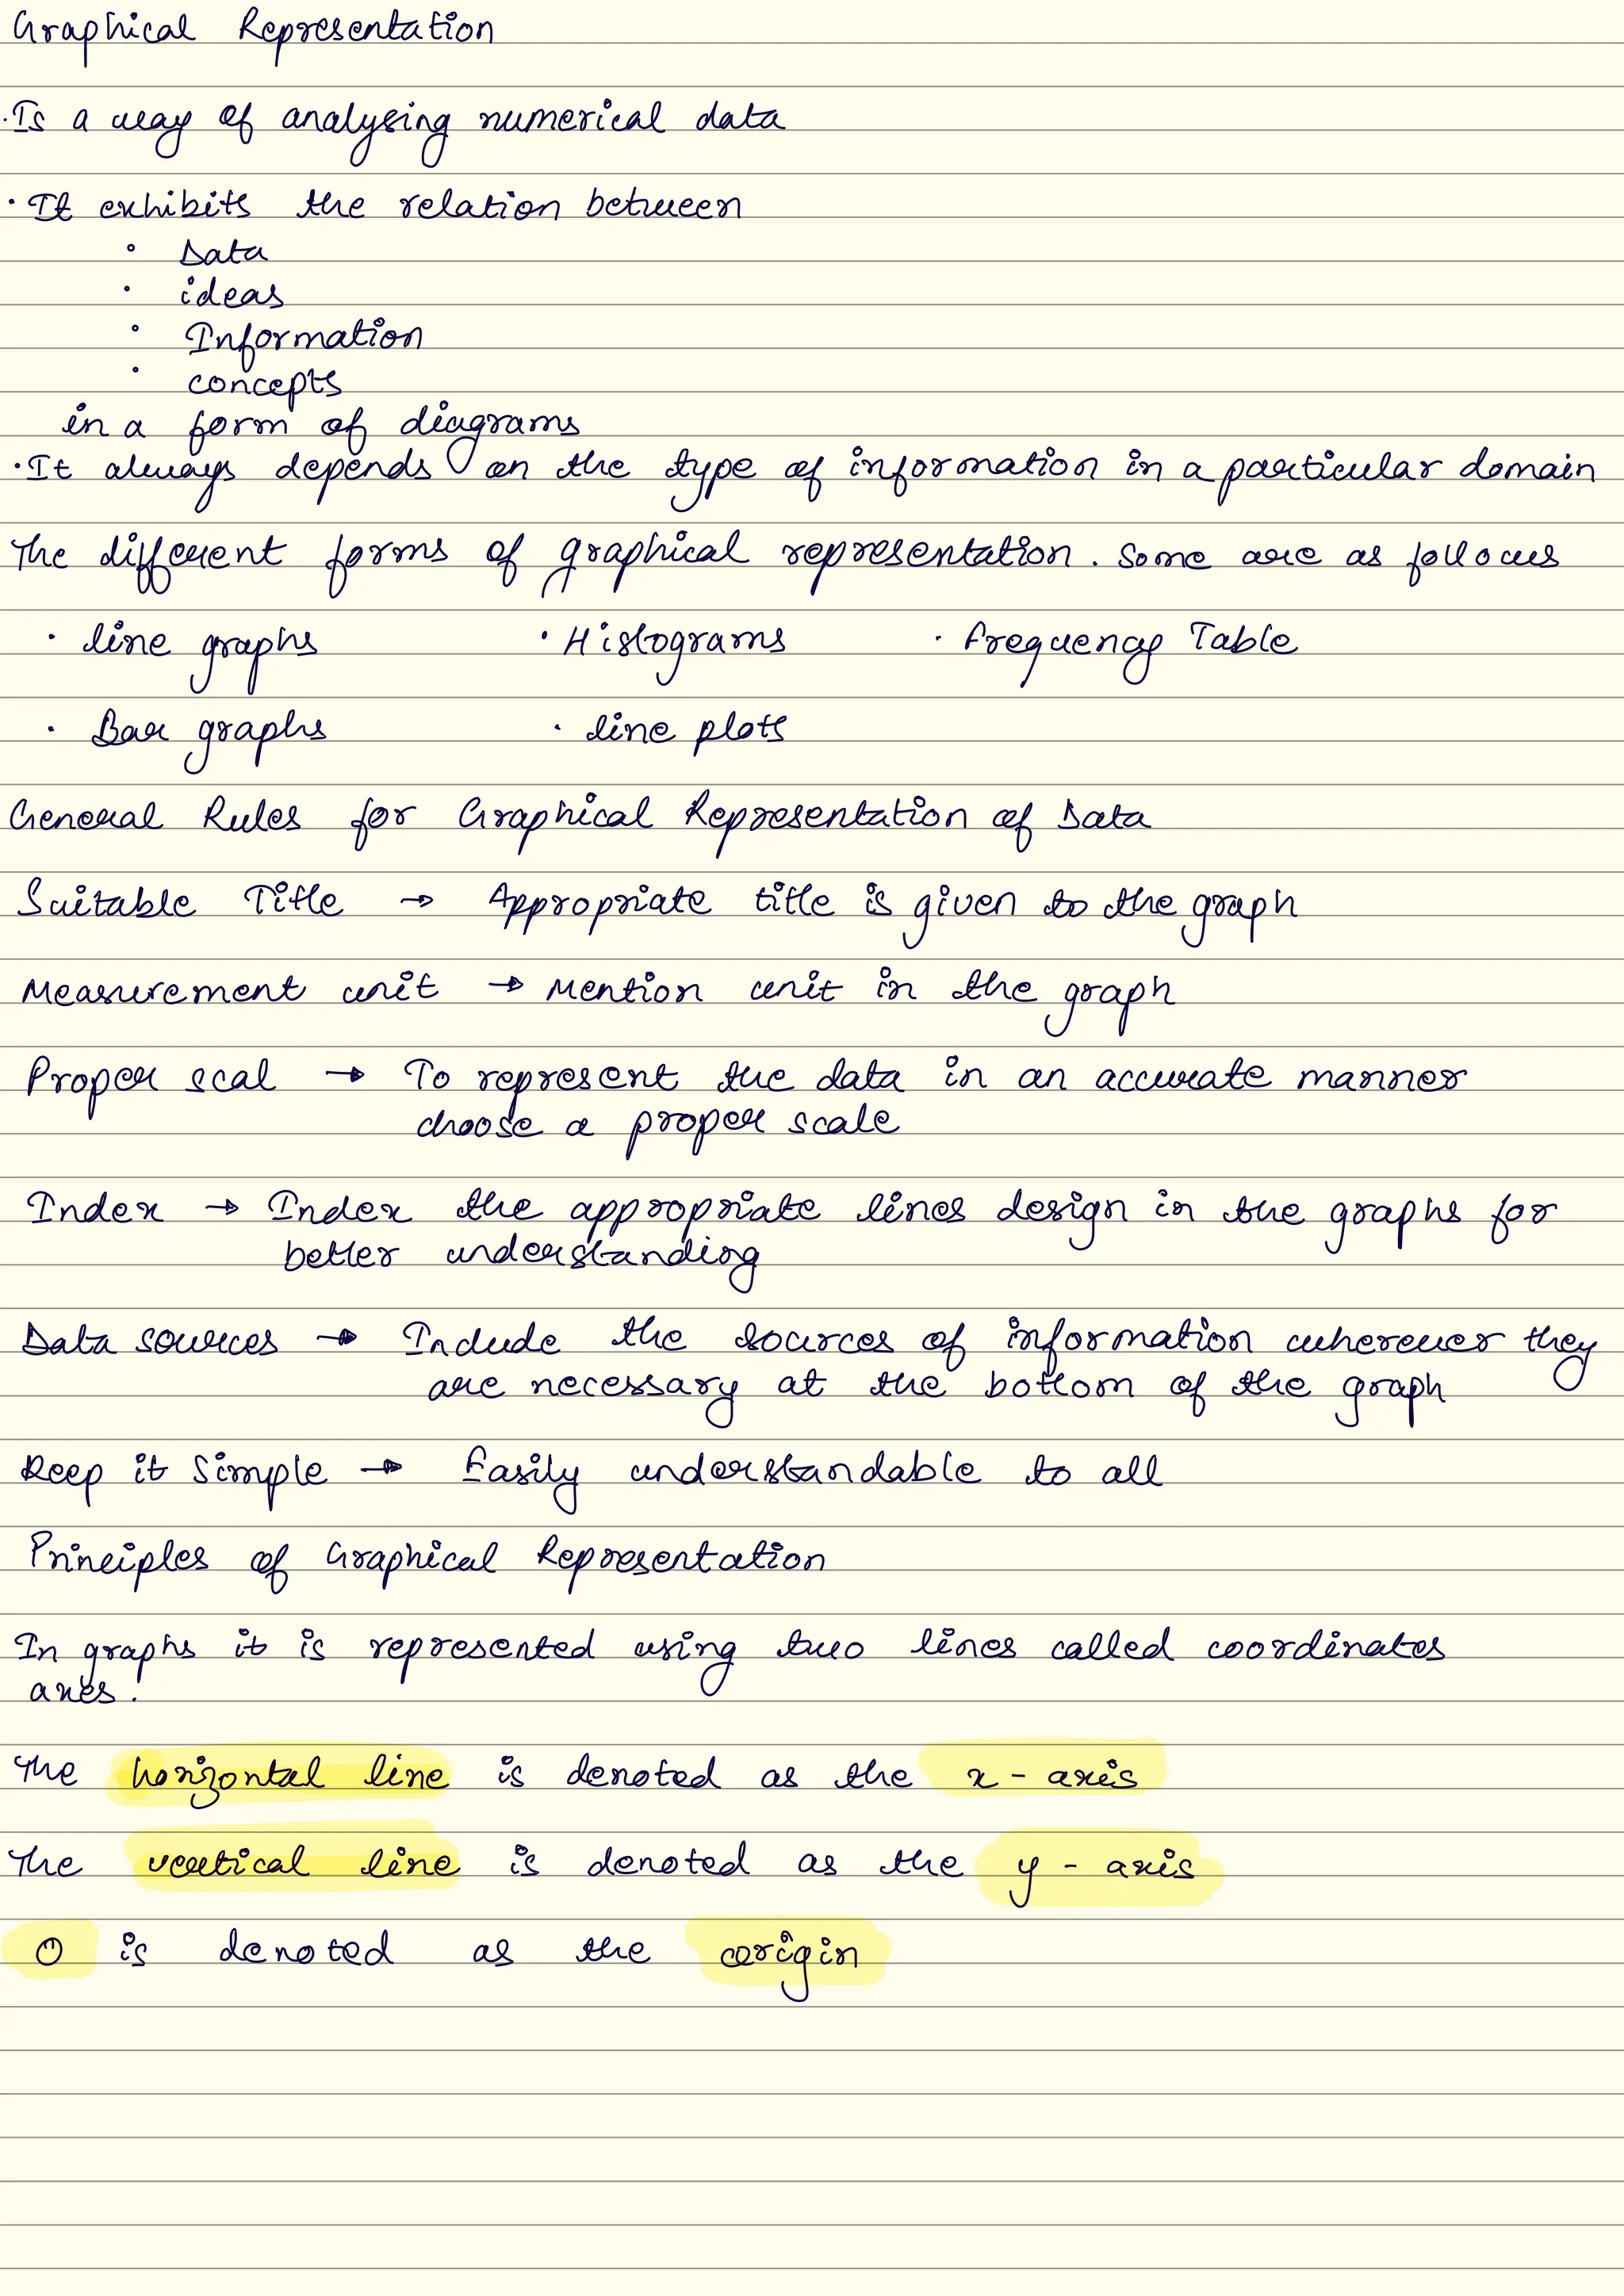 Graphical Representation
· Is a way of analysing numerical data
· It exhibits the relation between
• Data
• ideas
• Information
• concepts
in a form of diagrams
· It always depends on the type of information in a particular domain
The different forms of graphical representation. Some are as follows
· line graphs · Histograms · Frequency Table
· Bar graphs · line plots
General Rules for Graphical Representation of Data
Suitable Title → Appropriate title is given to the graph
Measurement unit → Mention unit in the graph
Proper scal → To represent the data in an accurate manner
choose a proper scale
Index → Index the appropriate lines design in the graphs for
better understanding
Data sources → Include the sources of information wherever they
are necessary at the bottom of the graph
Keep it Simple → Easily understandable to all
Principles of Graphical Representation
In graphs it is represented using two lines called coordinates
axes.
The horizontal line is denoted as the x - axis
The vertical line is denoted as the y - axis
O is denoted as the origin